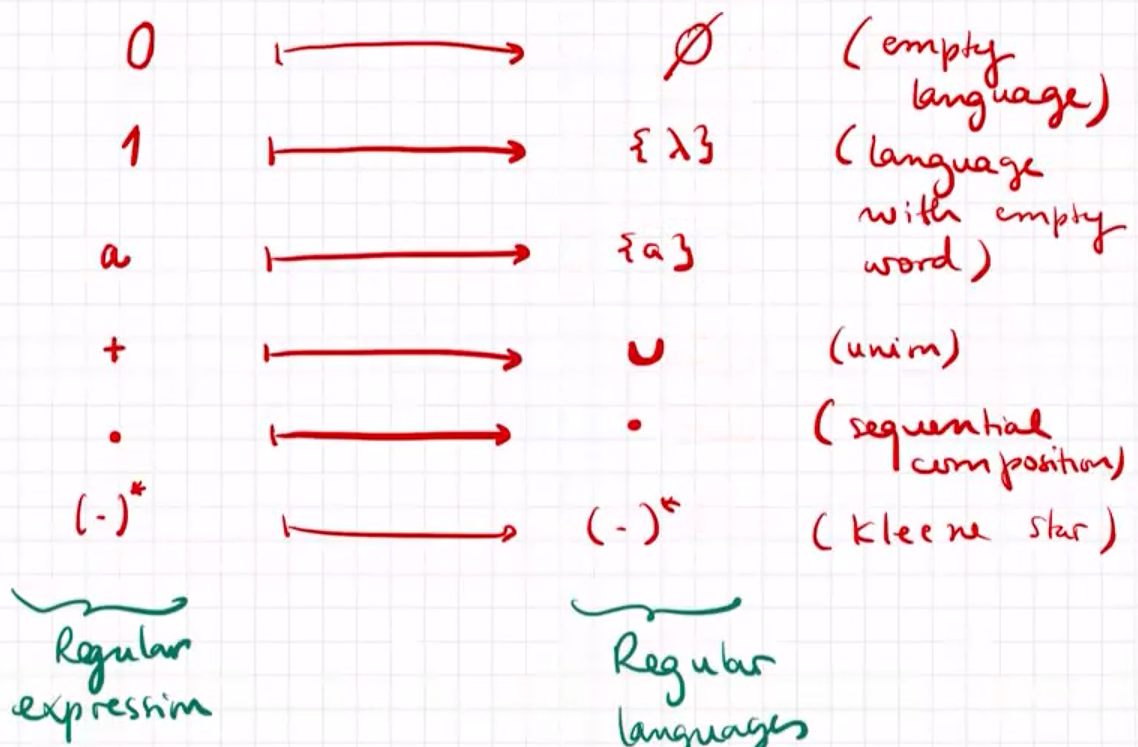 0 ↦ ∅ (empty
language)
1 ↦ {λ} (language
with empty
a ↦ {a} word)
+ ↦ ∪ (union)
• ↦ • (sequential
composition)
(-)* ↦ (-)* (Kleene star)
Regular Regular
expression languages